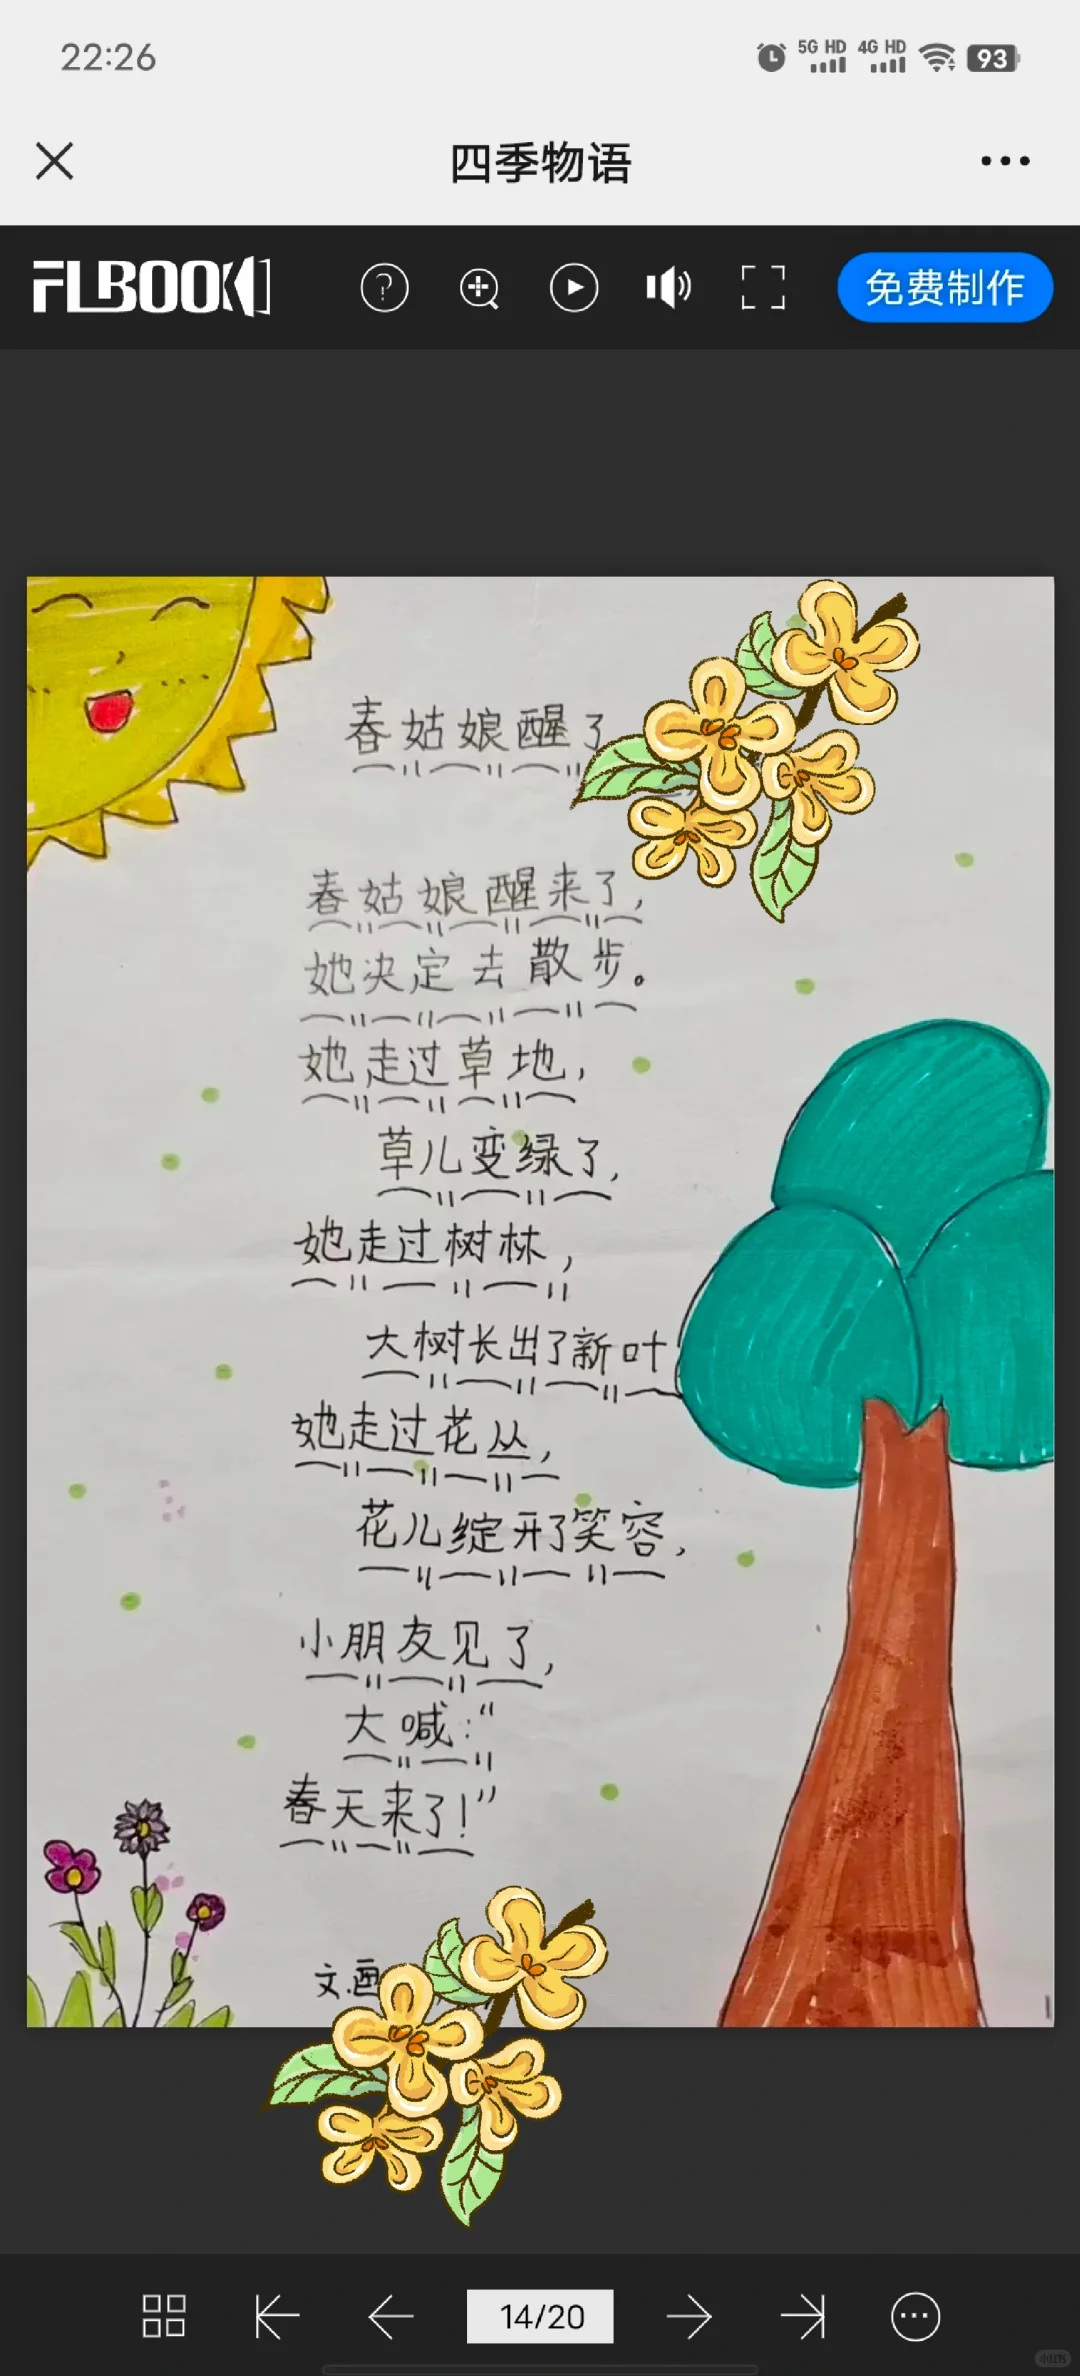 22:26
5G HD 4G HD 93
四季物语
FLBOOK
免费制作
春姑娘醒了
春姑娘醒来了,
她决定去散步。
她走过草地,
草儿变绿了,
她走过树林,
大树长出了新叶
她走过花丛,
花儿绽开了笑容,
小朋友见了,
大喊:“
春天来了!”
文.画
14/20
小红书